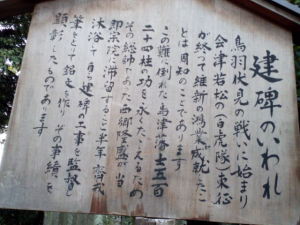 建碑のいわれ
鳥羽伏見の戦いに始まり
会津若松(白虎隊)東征
が終って維新の鴻業成就したこ
とは周知のことであります
この難に倒れた島津藩士五百
二十四柱の功を永くたゝえるため
その総帥であった西郷隆盛が当
即宗院に滞留すること半年 斎戒
沐浴して自ら建碑の工事を監督し
筆をとって銘を作り その事績を
顕彰したものであります